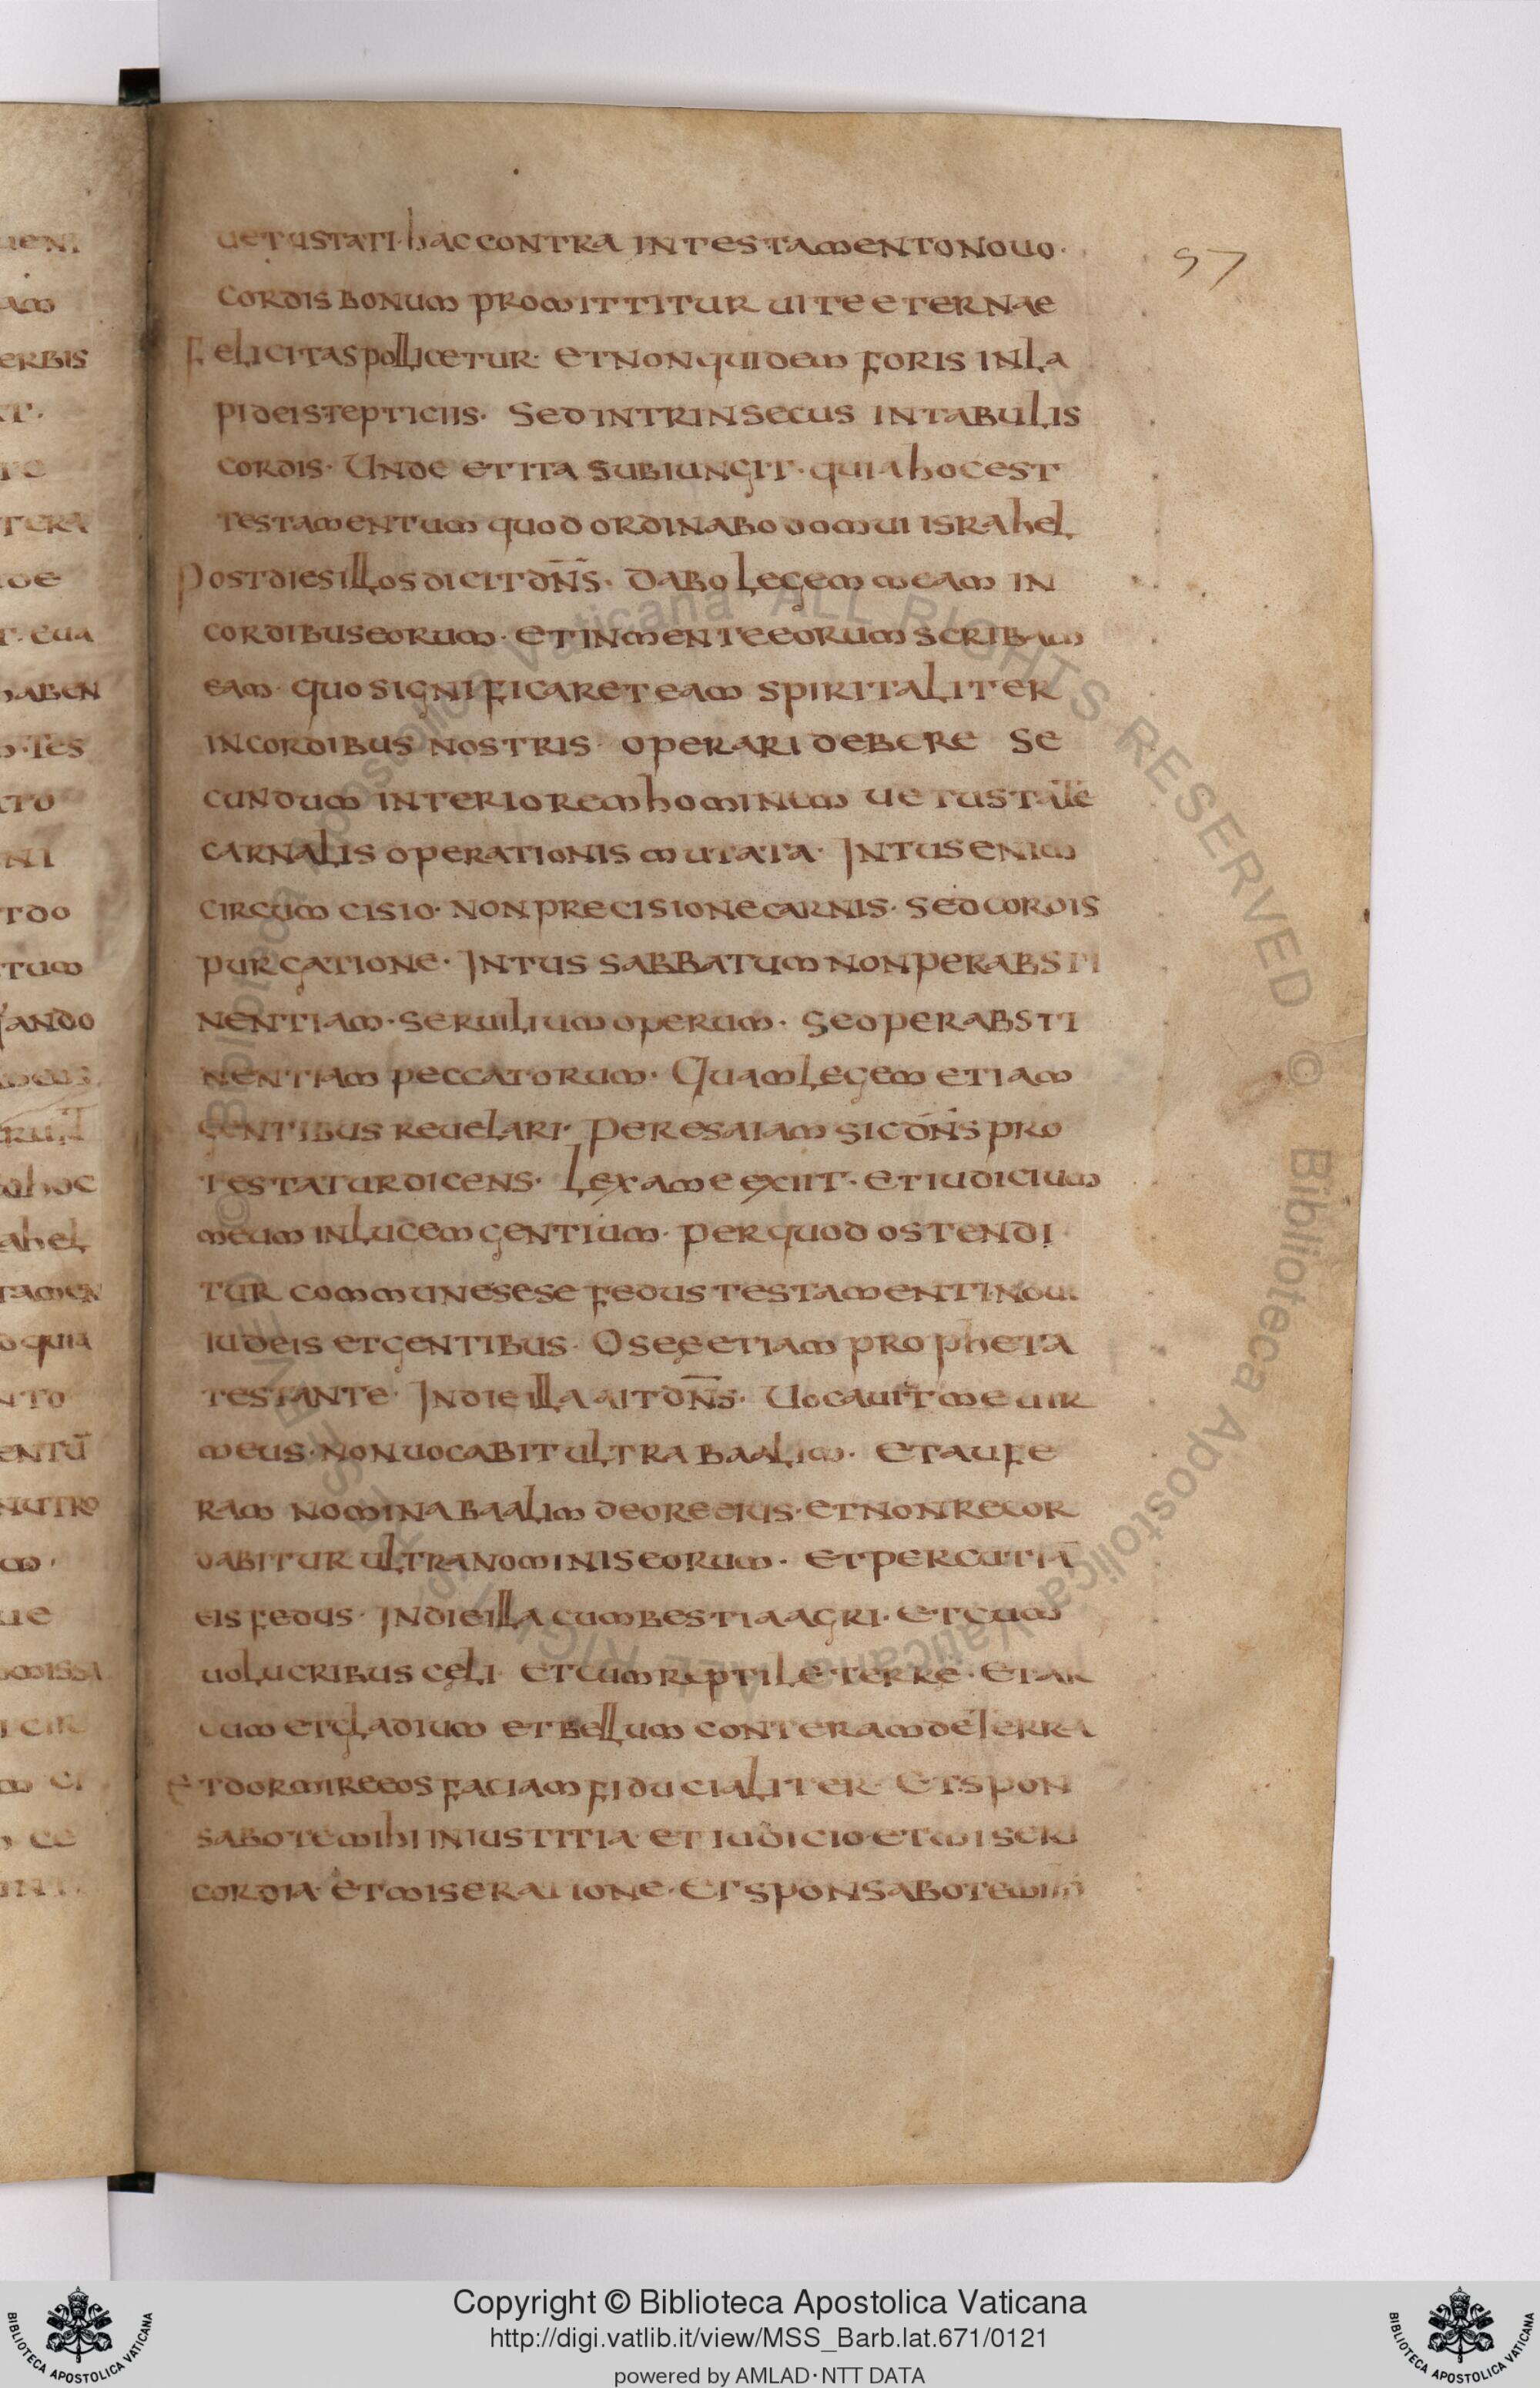 uetustati· hac contra in testamento nouo·
cordis bonum promittitur uite eternae
felicitas pollicetur· et non quidem foris in la
pideis tepticiis· sed intrinsecus in tabulis
cordis· Unde et ita subiungit· quia hoc est
testamentum quod ordinabo domui israhel
Post dies illos dicit dn̄s· Dabo legem meam in
cordibus eorum· et in mente eorum scribam
eam· quo significaret eam spiritaliter
in cordibus nostris· operari debere se
cundum interiorem hominem
carnalis operationis mutata· Intus enim
circumcisio· non precisione carnis· sed cordis
purgatione· Intus sabbatum non per absti
nentiam· seruilium operum· sed per absti
nentiam peccatorum· Quam legem etiam
gentibus reuelari· per esaiam sic dn̄s pro
testatur dicens· Lex a me exiit· et iudicium
meum in lucem gentium· per quod ostendi
tur commune sese fedus testamenti noui
iudeis et gentibus· Osee etiam propheta
testante· In die illa ait dn̄s· Uocauit me uir
meus· non uocabit ultra baalim· et aufe
ram nomina baalim de ore eius· et non recor
dabitur ultra nominis eorum· et percutiā
eis fedus· In die illa cum bestia agri· et cum
uolucribus cęli· et cum reptile terrę· et ar
cum et gladium et bellum conteram de terra
et dormire eos faciam fiducialiter· Et spon
sabo te mihi in iustitia· et iudicio· et miseri
cordia· et miseratione· Et sponsabo te mihi
57
ueni
am
erbis
te
tera
de
t· eua
haben
m· tes
ato
ni
t do
tum
ando
o hoc
ahel
tamen
o quia
nto
entū
ue
omissa
Copyright © Biblioteca Apostolica Vaticana
http://digi.vatlib.it/view/MSS_Barb.lat.671/0121
powered by AMLAD·NTT DATA
BIBLIOTECA APOSTOLICA VATICANA
BIBLIOTECA APOSTOLICA VATICANA